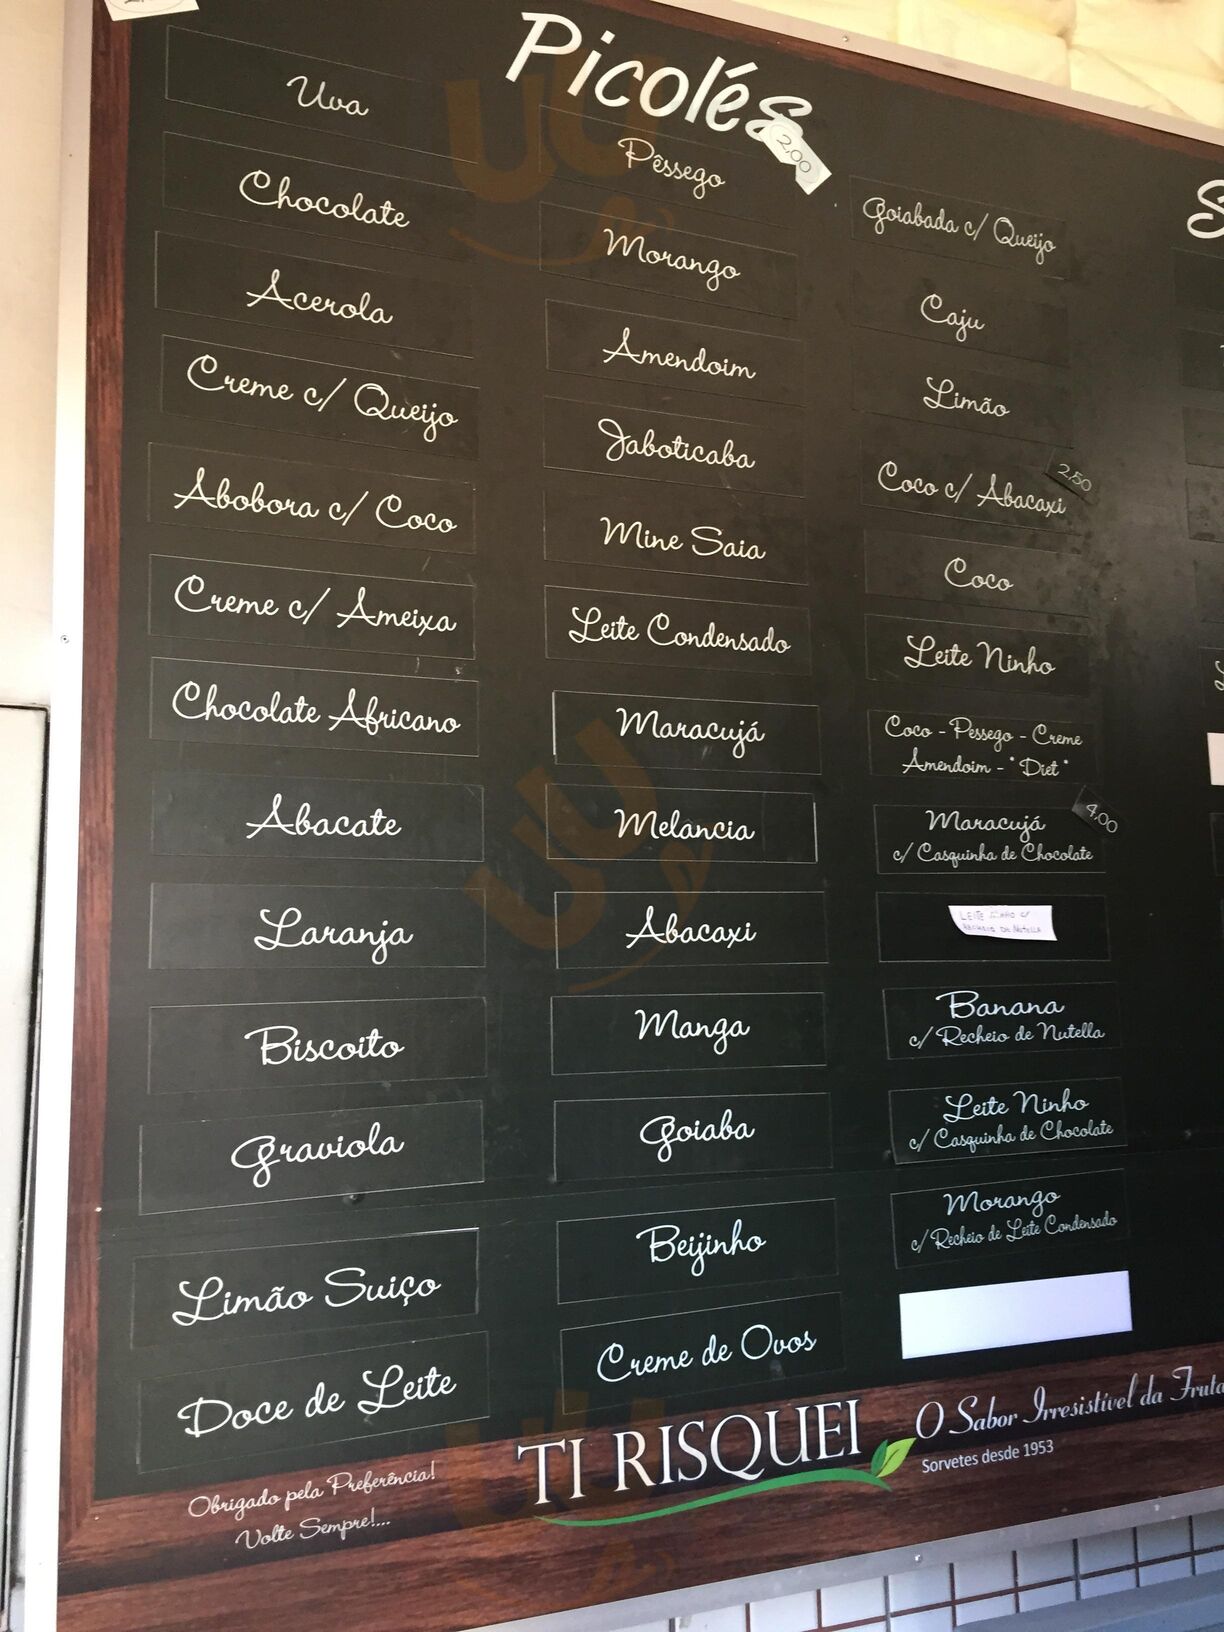 Picolés
2,00
Uva
Chocolate
Acerola
Creme c/ Queijo
Abobora c/ Coco
Creme c/ Ameixa
Chocolate Africano
Abacate
Laranja
Biscoito
Graviola
Limão Suiço
Doce de Leite
Pêssego
Morango
Amendoim
Jaboticaba
Mine Saia
Leite Condensado
Maracujá
Melancia
Abacaxi
Manga
Goiaba
Beijinho
Creme de Ovos
Goiabada c/ Queijo
Caju
Limão
2,50
Coco c/ Abacaxi
Coco
Leite Ninho
Coco - Pessego - Creme
Amendoim - "Diet"
4,00
Maracujá
c/ Casquinha de Chocolate
LEITE NINHO C/
RECHEIO DE NUTELLA
Banana
c/ Recheio de Nutella
Leite Ninho
c/ Casquinha de Chocolate
Morango
c/ Recheio de Leite Condensado
Obrigado pela Preferência!
Volte Sempre!...
TI RISQUEI
O Sabor Irresistível da Fruta
Sorvetes desde 1953